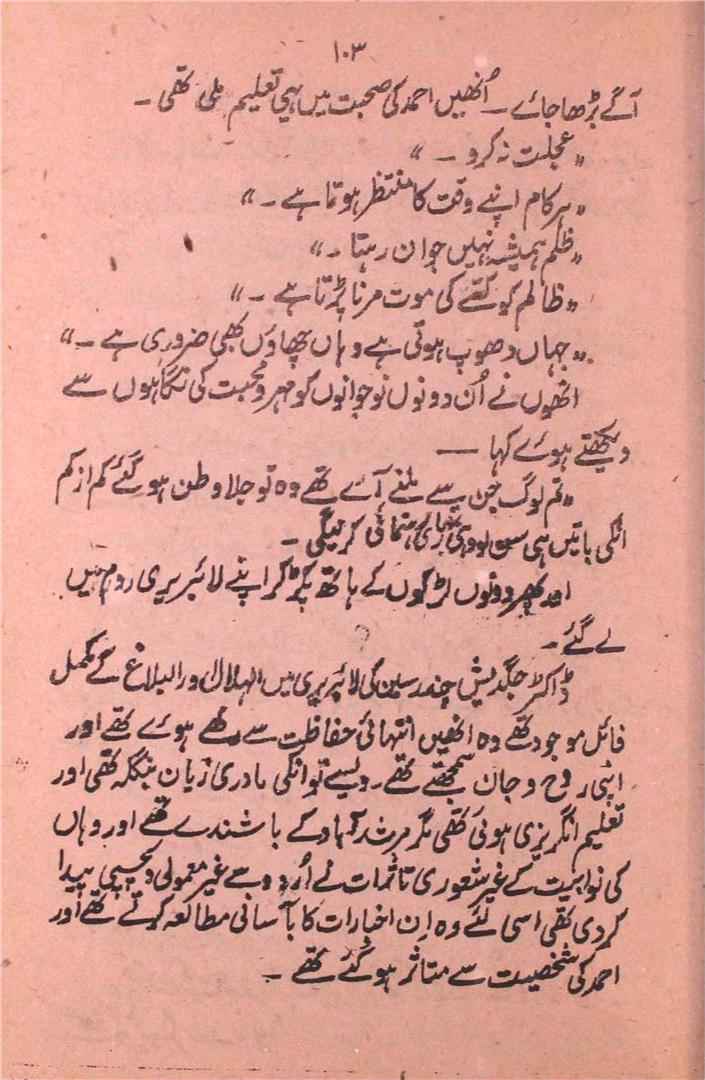 ۱۰۳
آگے بڑھا جائے ۔ اُنھیں احمد کی صحبت میں یہی تعلیم ملی تھی ۔
”عجلت نہ کرو ۔“
”ہر کام اپنے وقت کا منتظر ہوتا ہے ۔“
”ظلم ہمیشہ نہیں جوان رہتا ۔“
”ظالم کو کتّے کی موت مرنا پڑتا ہے ۔“
”جہاں دھوپ ہوتی ہے وہاں چھاؤں بھی ضروری ہے ۔“
انھوں نے اُن دونوں نوجوانوں کو مہر و محبت کی نگاہوں سے
دیکھتے ہوئے کہا ——
”تم لوگ جن سے ملنے آئے تھے وہ تو جلا وطن ہو گئے کم از کم
انکی باتیں ہی سن لو وہی تمہاری رہنمائی کرینگی ۔
اور پھر دونوں لڑکوں کے ہاتھ پکڑ کر اپنے لائبریری روم میں
لے گئے ۔
ڈاکٹر جگدیش چندر سین کی لائبریری میں الہلال اور البلاغ کے مکمل
فائل موجود تھے وہ انھیں انتہائی حفاظت سے رکھے ہوئے تھے اور
اپنی روح و جان سمجھتے تھے ۔ ویسے تو انکی مادری زبان بنگلہ تھی اور
تعلیم انگریزی ہوئی تھی مگر مرشد آباد کے باشندے تھے اور وہاں
کی نوابیت کے غیر شعوری تاثرات نے اُردو سے غیر معمولی دلچسپی پیدا
کر دی تھی اسی لئے وہ اِن اخبارات کا بآسانی مطالعہ کرتے تھے اور
احمد کی شخصیت سے متاثر ہو گئے تھے ۔